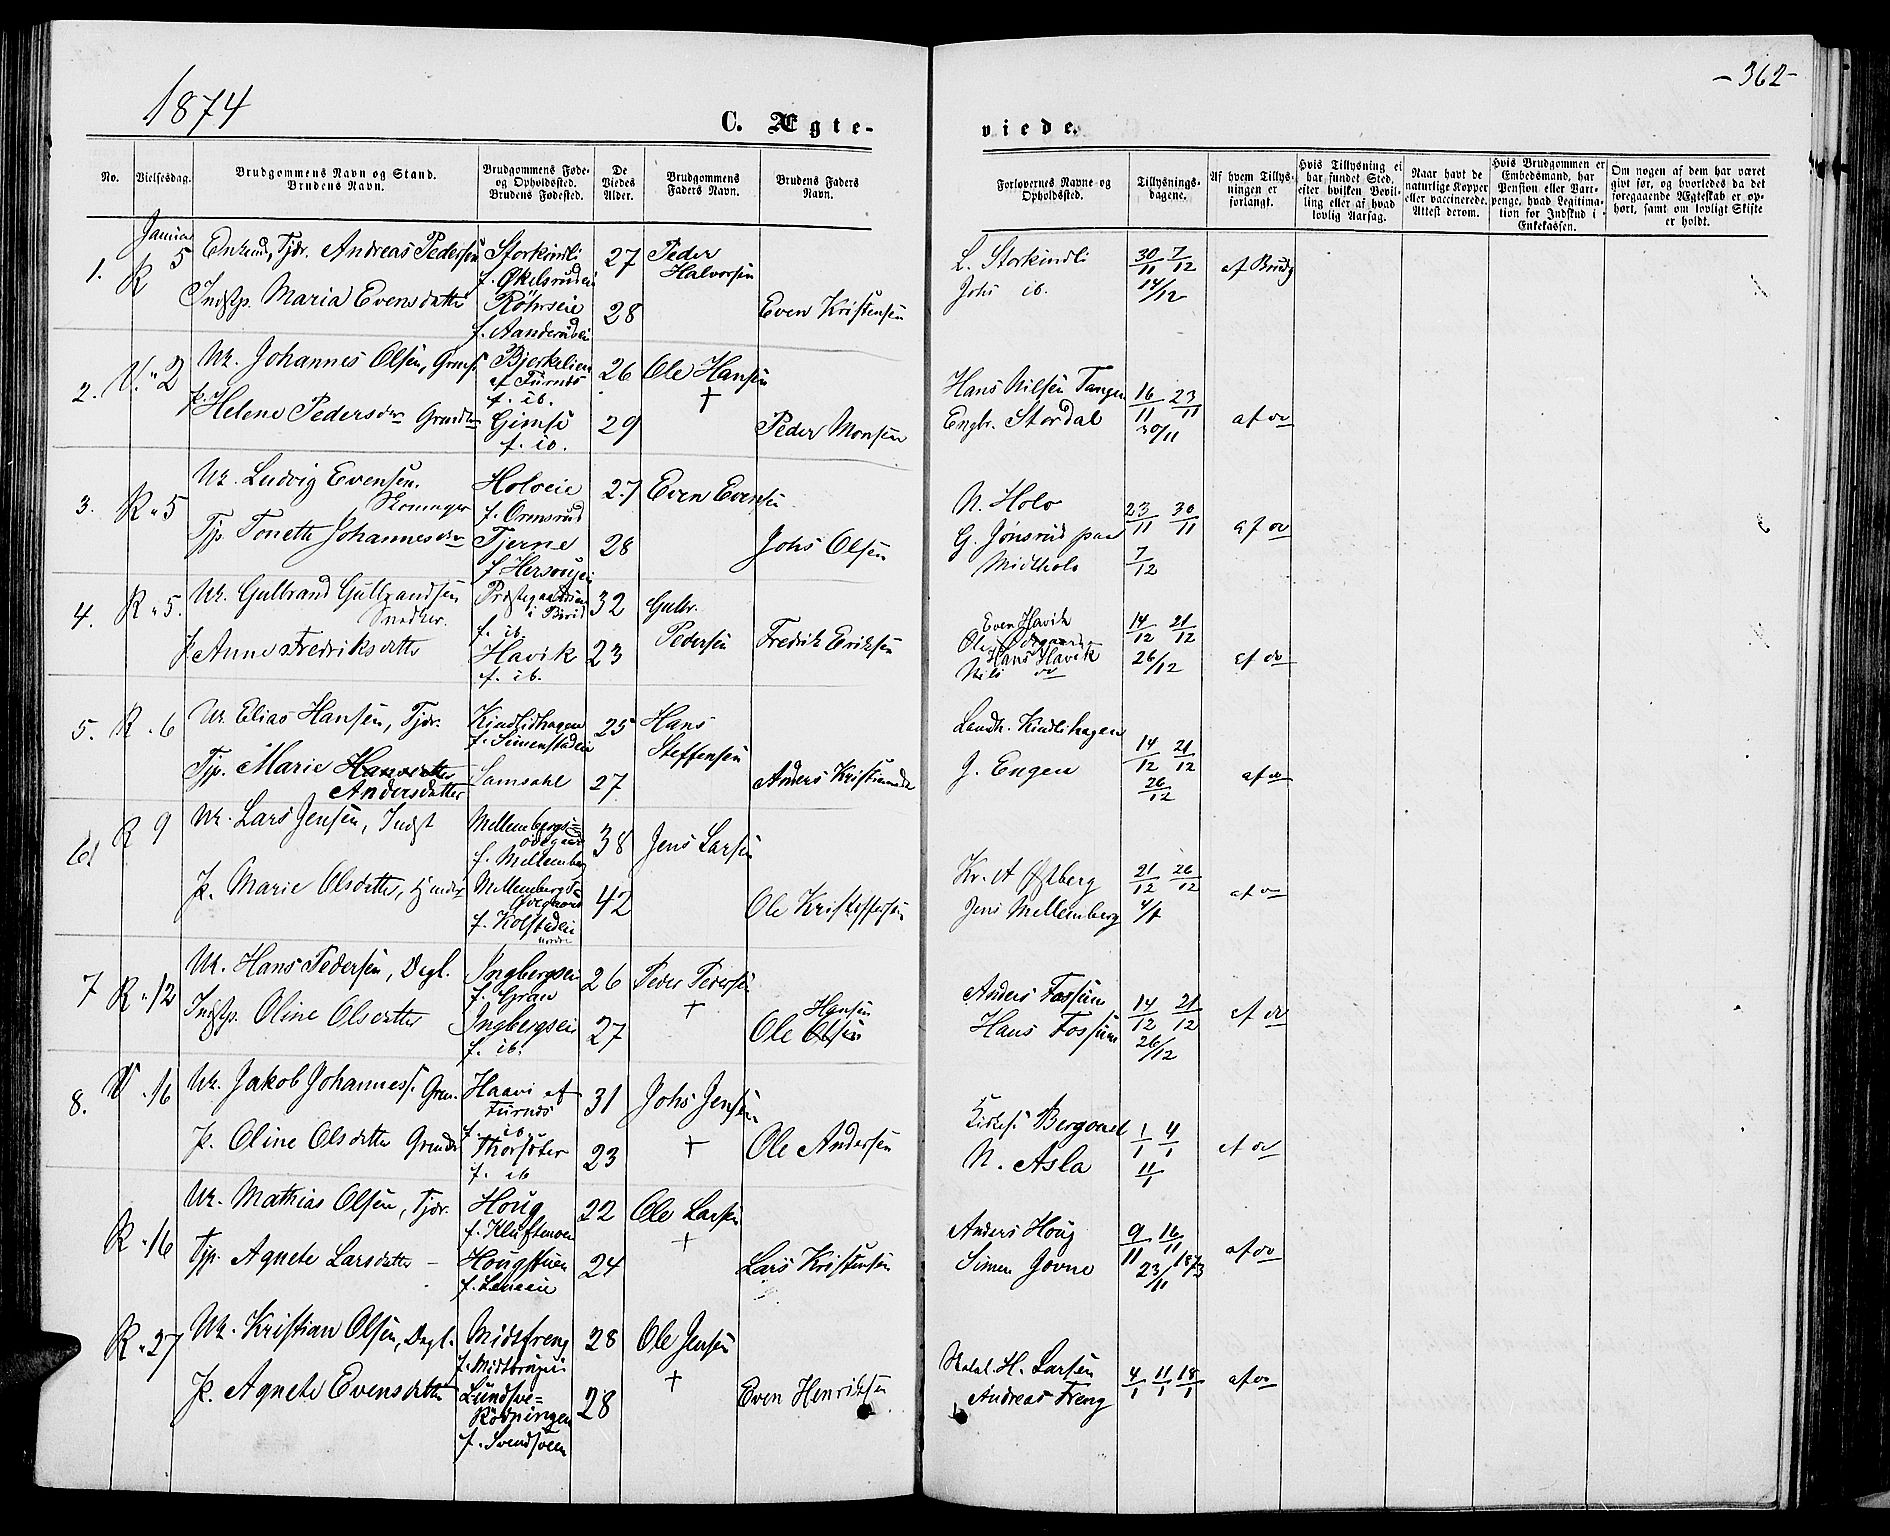 1874
-362-
C. Ægte-
viede.
No.
Vielsesdag.
Brudgommens Navn og Stand.
Brudens Navn.
Brudgommens Føde-
og Opholdssted.
Brudens Fødested.
De
Viedes
Alder.
Brudgommens
Faders Navn.
Brudens Faders
Navn.
Forlovernes Navne og
Opholdssted.
Tillysnings-
dagene.
Af hvem Tillys-
ningen er
forlangt.
Hvis Tillysning ei
har fundet Sted,
efter hvilken Bevil-
ling eller af hvad
lovlig Aarsag.
Naar havt de
naturlige Kopper
eller vaccinerede.
Attest derom.
Hvis Brudgommen er
Embedsmand, har
Pension eller Vart-
penge, hvad Legitima-
tion for Indskud i
Enkekassen.
Om nogen af dem har været
givt før, og hvorledes da det
foregaaende Ægteskab er op-
hørt, samt om lovligt Skifte
er holdt.
Januar
1. R 5 Enkem, Tjdr. Andreas Pedersen Storkindli 27 Peder Halvorsen L. Storkindli 30/11 7/12 af Brudg
f. Økelsrudei
Indstp. Maria Evensdatter Röhrseie 28 Even Kristensen Johs ib. 14/12
f. Aanderudei
2. V. " 2 Uk. Johannes Olsen, Grmds. Bjerkelien 26 Ole Hansen Hans Nilsen Tangen 16/11 23/11 af do
af Furnes
f. ib. +
P. Helene Pedersdr Grmdr Gimse 29 Peder Monsen Engbr. Stordal 30/11
f. ib.
3. R " 5 Uk. Ludvig Evensen, Holoeie 27 Even Evensen N. Holo 23/11 30/11 af do
Skomager f. Ormsrud
Tjp. Tonette Johannesdr Tjerne 28 Johs Olsen G. Jønsrud paa
f. Hersougei Midtholo 7/12
4. R " 5. Uk. Gulbrand Gulbrandsen Præstegaardseie 32 Gulbr. Pedersen Even Havik 14/12 21/12 af do
Snedker. i Birid
f. ib.
P. Anne Fredriksdatter Havik 23 Fredrik Eriksen Hans Havik 26/12
f. ib. Nils do
5. R " 6 Uk Elias Hansen, Tjdr. Kindlihagen 25 Hans Steffensen Lendh. Kindlihagen 14/12 21/12 af do
f. Simenstadei
Tjp. Marie Hansdatter Samsahl 27 Anders Kristiansen J. Engen 26/12
Andersdatter
6 R 9 Uk. Lars Jensen, Indst Mellembergs- 38 Jens Larsen Kr. A Østberg 21/12 26/12 af do
ødegaard
f. Mellemberg
P. Marie Olsdatter, Mellembergs- 42 Ole Kristoffersen Jens Mellemberg 4/1
ødegaard
f. Kolstadeie
nordre
7 R " 12 Uk. Hans Pedersen, Dagl. Ingbergsei 26 Peder Pedersen Anders Fossum 14/12 21/12 af do
f. Gran +
Indstp. Oline Olsdatter Ingbergsei 27 Ole Olsen Hansen Hans Fossum 26/12
f. ib.
8. V " 16 Uk. Jakob Johanness. Grm. Haavi af 31 Johs Jensen Kirkes. Bergonel 1/1 4/1 af do
Furnes
f. ib +
P. Oline Olsdatter Grmdr Thorsöter 23 Ole Andersen N. Asla 11/1
f. ib
R " 16 Uk. Mathias Olsen, Tjdr. Houg 22 Ole Larsen Anders Houg 9/11 16/11 af do
f. Kluftmoen +
Tjp. Agnete Larsdatter - Hougstuen 24 Lars Kristensen Simen Jovne 23/11 1873
f. Lenaeie
R " 27 Uk. Kristian Olsen, Dagl. Midtfreng 28 Ole Jensen H. Larsen 4/1 11/1 18/1 af do
f. Midtbrugei +
P. Agnete Evensdatter Lundsve- 28 Even Henriksen Andreas Freng
Rödningen
f. Svendsveen